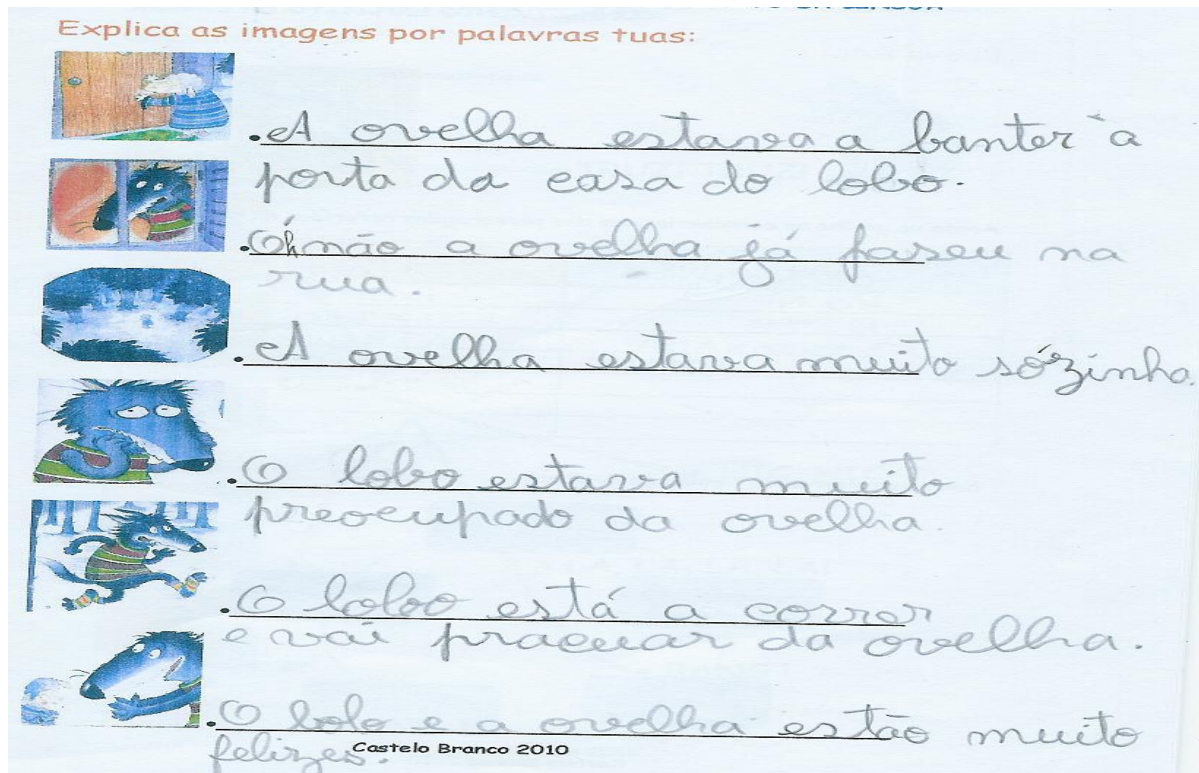 Explica as imagens por palavras tuas:
.A ovelha estava a banter à
porta da casa do lobo.
.Oh não a ovelha já faseu na
rua.
.A ovelha estava muito sózinha.
.O lobo estava muito
preocupado da ovelha.
.O lobo está a correr
e vai pracuar da ovelha.
.O lolo e a ovelha estão muito
felizes.
Castelo Branco 2010